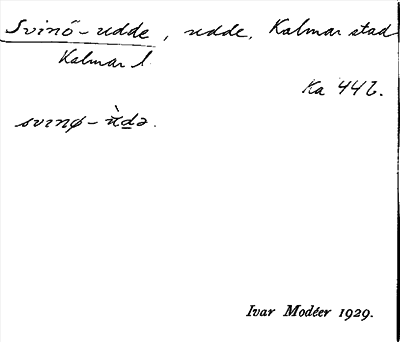 Svinö-udde, udde, Kalmar stad
Kalmar l
Ka 446.
svinø-ùdə.
Ivar Modéer 1929.